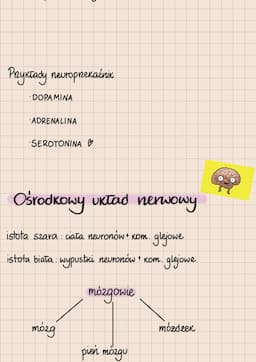 Przykłady neuroprzekaźnik
DOPAMINA
ADRENALINA
SEROTONINA
Ośrodkowy układ nerwowy
istota szara : ciała neuronów + kom. glejowe
istota biała : wypustki neuronów + kom. glejowe
mózgowie
mózg
móżdżek
pień mózgu